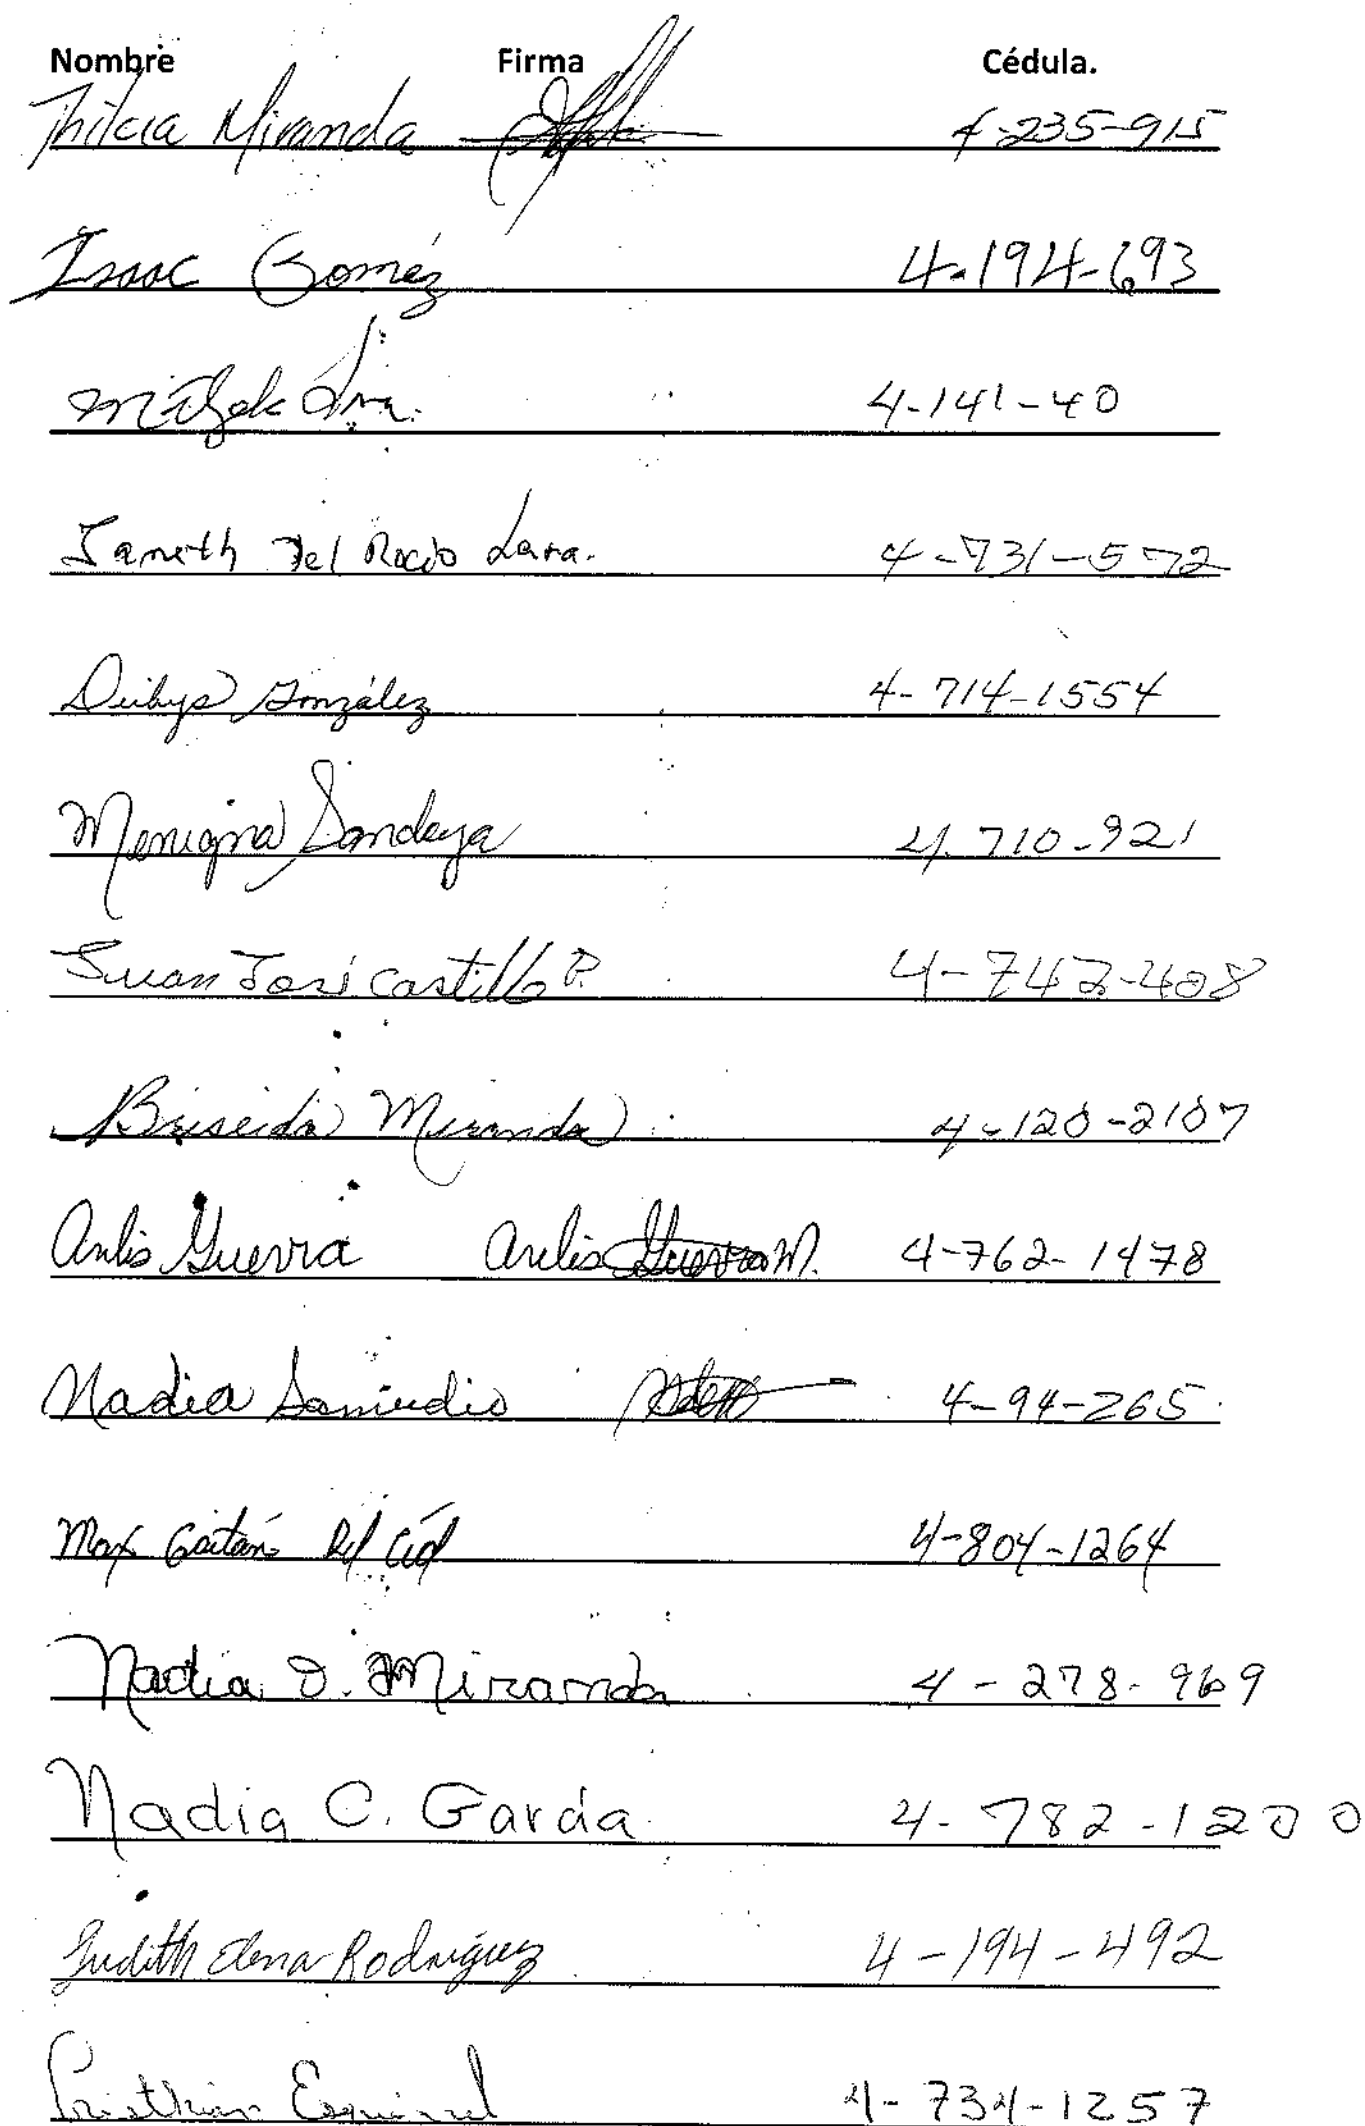 Nombre Firma Cédula.
Thilcia Miranda 4-235-915
Isaac Goméz 4-194-693
4-141-40
Janeth Del Rocio Lara. 4-731-572
Deibys González 4-714-1554
Menigna 4-710-921
Juan José Castillo P. 4-742-408
Briseida Miranda 4-120-2107
Arelis Guerra Arelis Guerra M. 4-762-1478
Nadia Samudio 4-94-265
Max Gaitán Del Cid 4-804-1264
Nadia D. Miranda 4-278-969
Nadia C. García 4-782-1200
Judith Elena Rodríguez 4-194-492
Cristhian Esquivel 4-734-1257